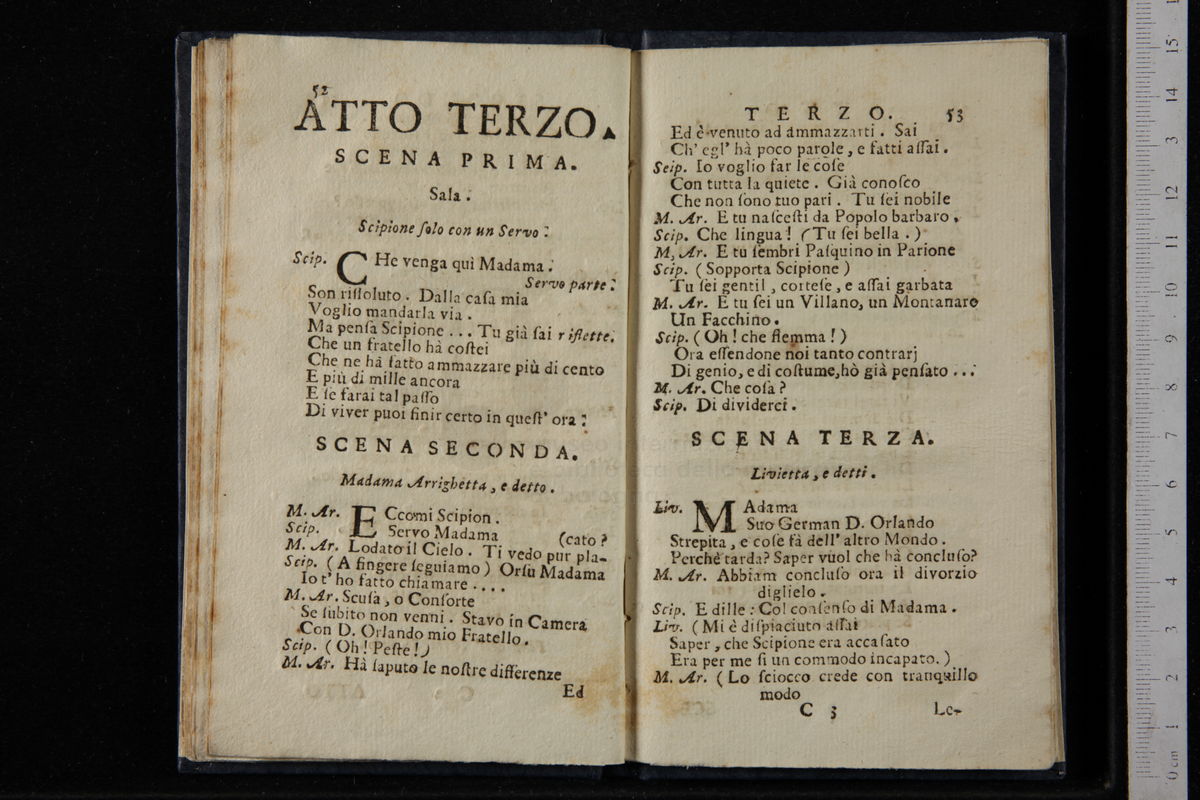 52
ATTO TERZO.
SCENA PRIMA.
Sala.
Scipione ſolo con un Servo.
Scip. CHe venga quì Madama.
Servo parte.
Son riſſoluto. Dalla caſa mia
Voglio mandarla via.
Ma penſa Scipione ... Tu già ſai riflette.
Che un fratello hà coſtei
Che ne hà fatto ammazzare più di cento
E più di mille ancora
E ſe farai tal paſſo
Di viver puoi finir certo in queſt' ora.
SCENA SECONDA.
Madama Arrighetta, e detto.
M. Ar. ECcomi Scipion.
Scip. Servo Madama (cato?
M. Ar. Lodato il Cielo. Ti vedo pur pla-
Scip. (A fingere ſeguiamo) Orſù Madama
Io t' ho fatto chiamare ....
M. Ar. Scuſa, o Conſorte
Se ſubito non venni. Stavo in Camera
Con D. Orlando mio Fratello.
Scip. (Oh! Peſte!)
M. Ar. Hà ſaputo le noſtre differenze
Ed
TERZO. 53
Ed è venuto ad ammazzarti. Sai
Ch' egl' hà poco parole, e fatti aſſai.
Scip. Io voglio far le coſe
Con tutta la quiete. Già conoſco
Che non ſono tuo pari. Tu ſei nobile
M. Ar. E tu naſceſti da Popolo barbaro.
Scip. Che lingua! (Tu ſei bella.)
M, Ar. E tu ſembri Paſquino in Parione
Scip. (Sopporta Scipione)
Tu ſei gentil, corteſe, e aſſai garbata
M. Ar. E tu ſei un Villano, un Montanaro
Un Facchino.
Scip. (Oh! che flemma!)
Ora eſſendone noi tanto contrarj
Di genio, e di coſtume, hò già penſato ...
M. Ar. Che coſa?
Scip. Di dividerci.
SCENA TERZA.
Livietta, e detti.
Liv. MAdama
Suo German D. Orlando
Strepita, e coſe fà dell' altro Mondo.
Perchè tarda? Saper vuol che hà concluſo?
M. Ar. Abbiam concluſo ora il divorzio
diglielo.
Scip. E dille: Col conſenſo di Madama.
Liv. (Mi è diſpiaciuto aſſai
Saper, che Scipione era accaſato
Era per me ſi un commodo incapato.)
M. Ar. (Lo ſciocco crede con tranquillo
modo
C 3 Le-
15
14
13
12
11
10
9
8
7
6
5
4
3
2
1
0 cm